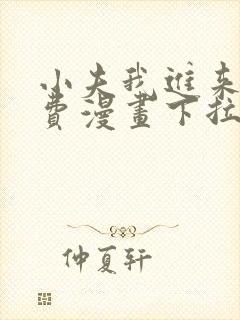 小夫我进来
费漫画下拉
仲夏轩